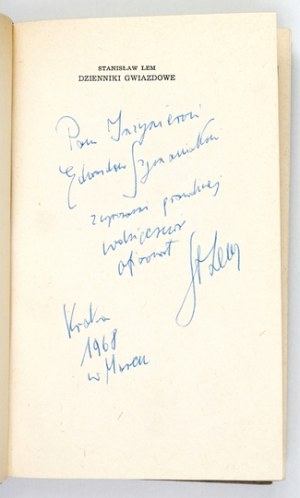 STANISŁAW LEM
DZIENNIKI GWIAZDOWE
Panu Inżynierowi
z wyrazami prawdziwej
wdzięczności
ofiarował
St Lem
Kraków
1968
w Marcu